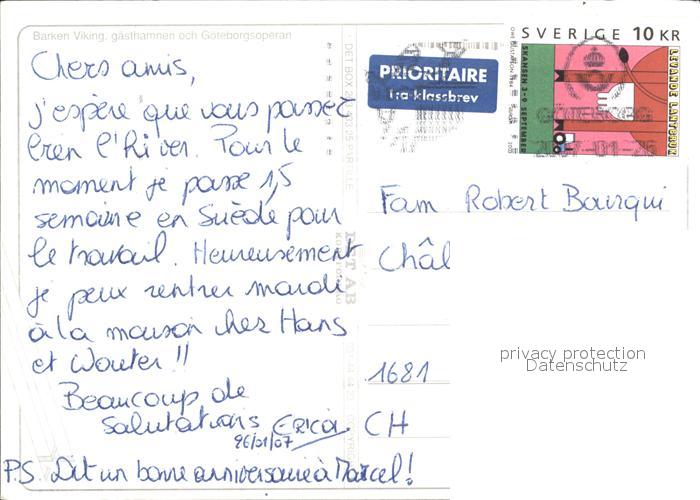 Barken Viking, gästhamnen och Göteborgsoperan
Chers amis,
j'espère que vous passez
bien l'hiver. Pour le
moment je passe 1,5
semaine en Suède pour
le travail. Heureusement
je peux rentrer mardi
à la maison chez Hans
et Wouter !!
Beaucoup de
salutations Erica
26/01/07
P.S. Dit un bonne anniversaire à Marcel!
PRIORITAIRE
1:a-klassbrev
SVERIGE 10 KR
SKANSEN 3-9 SEPTEMBER
LEVANDE LANTGÅRD
Fam Robert Bourqui
Châl
1681
CH
privacy protection
Datenschutz